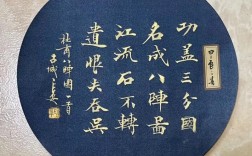 功盖三分國
名成八陣啚
江流石不轉
遺恨失吞吳
杜甫八陣圖一首